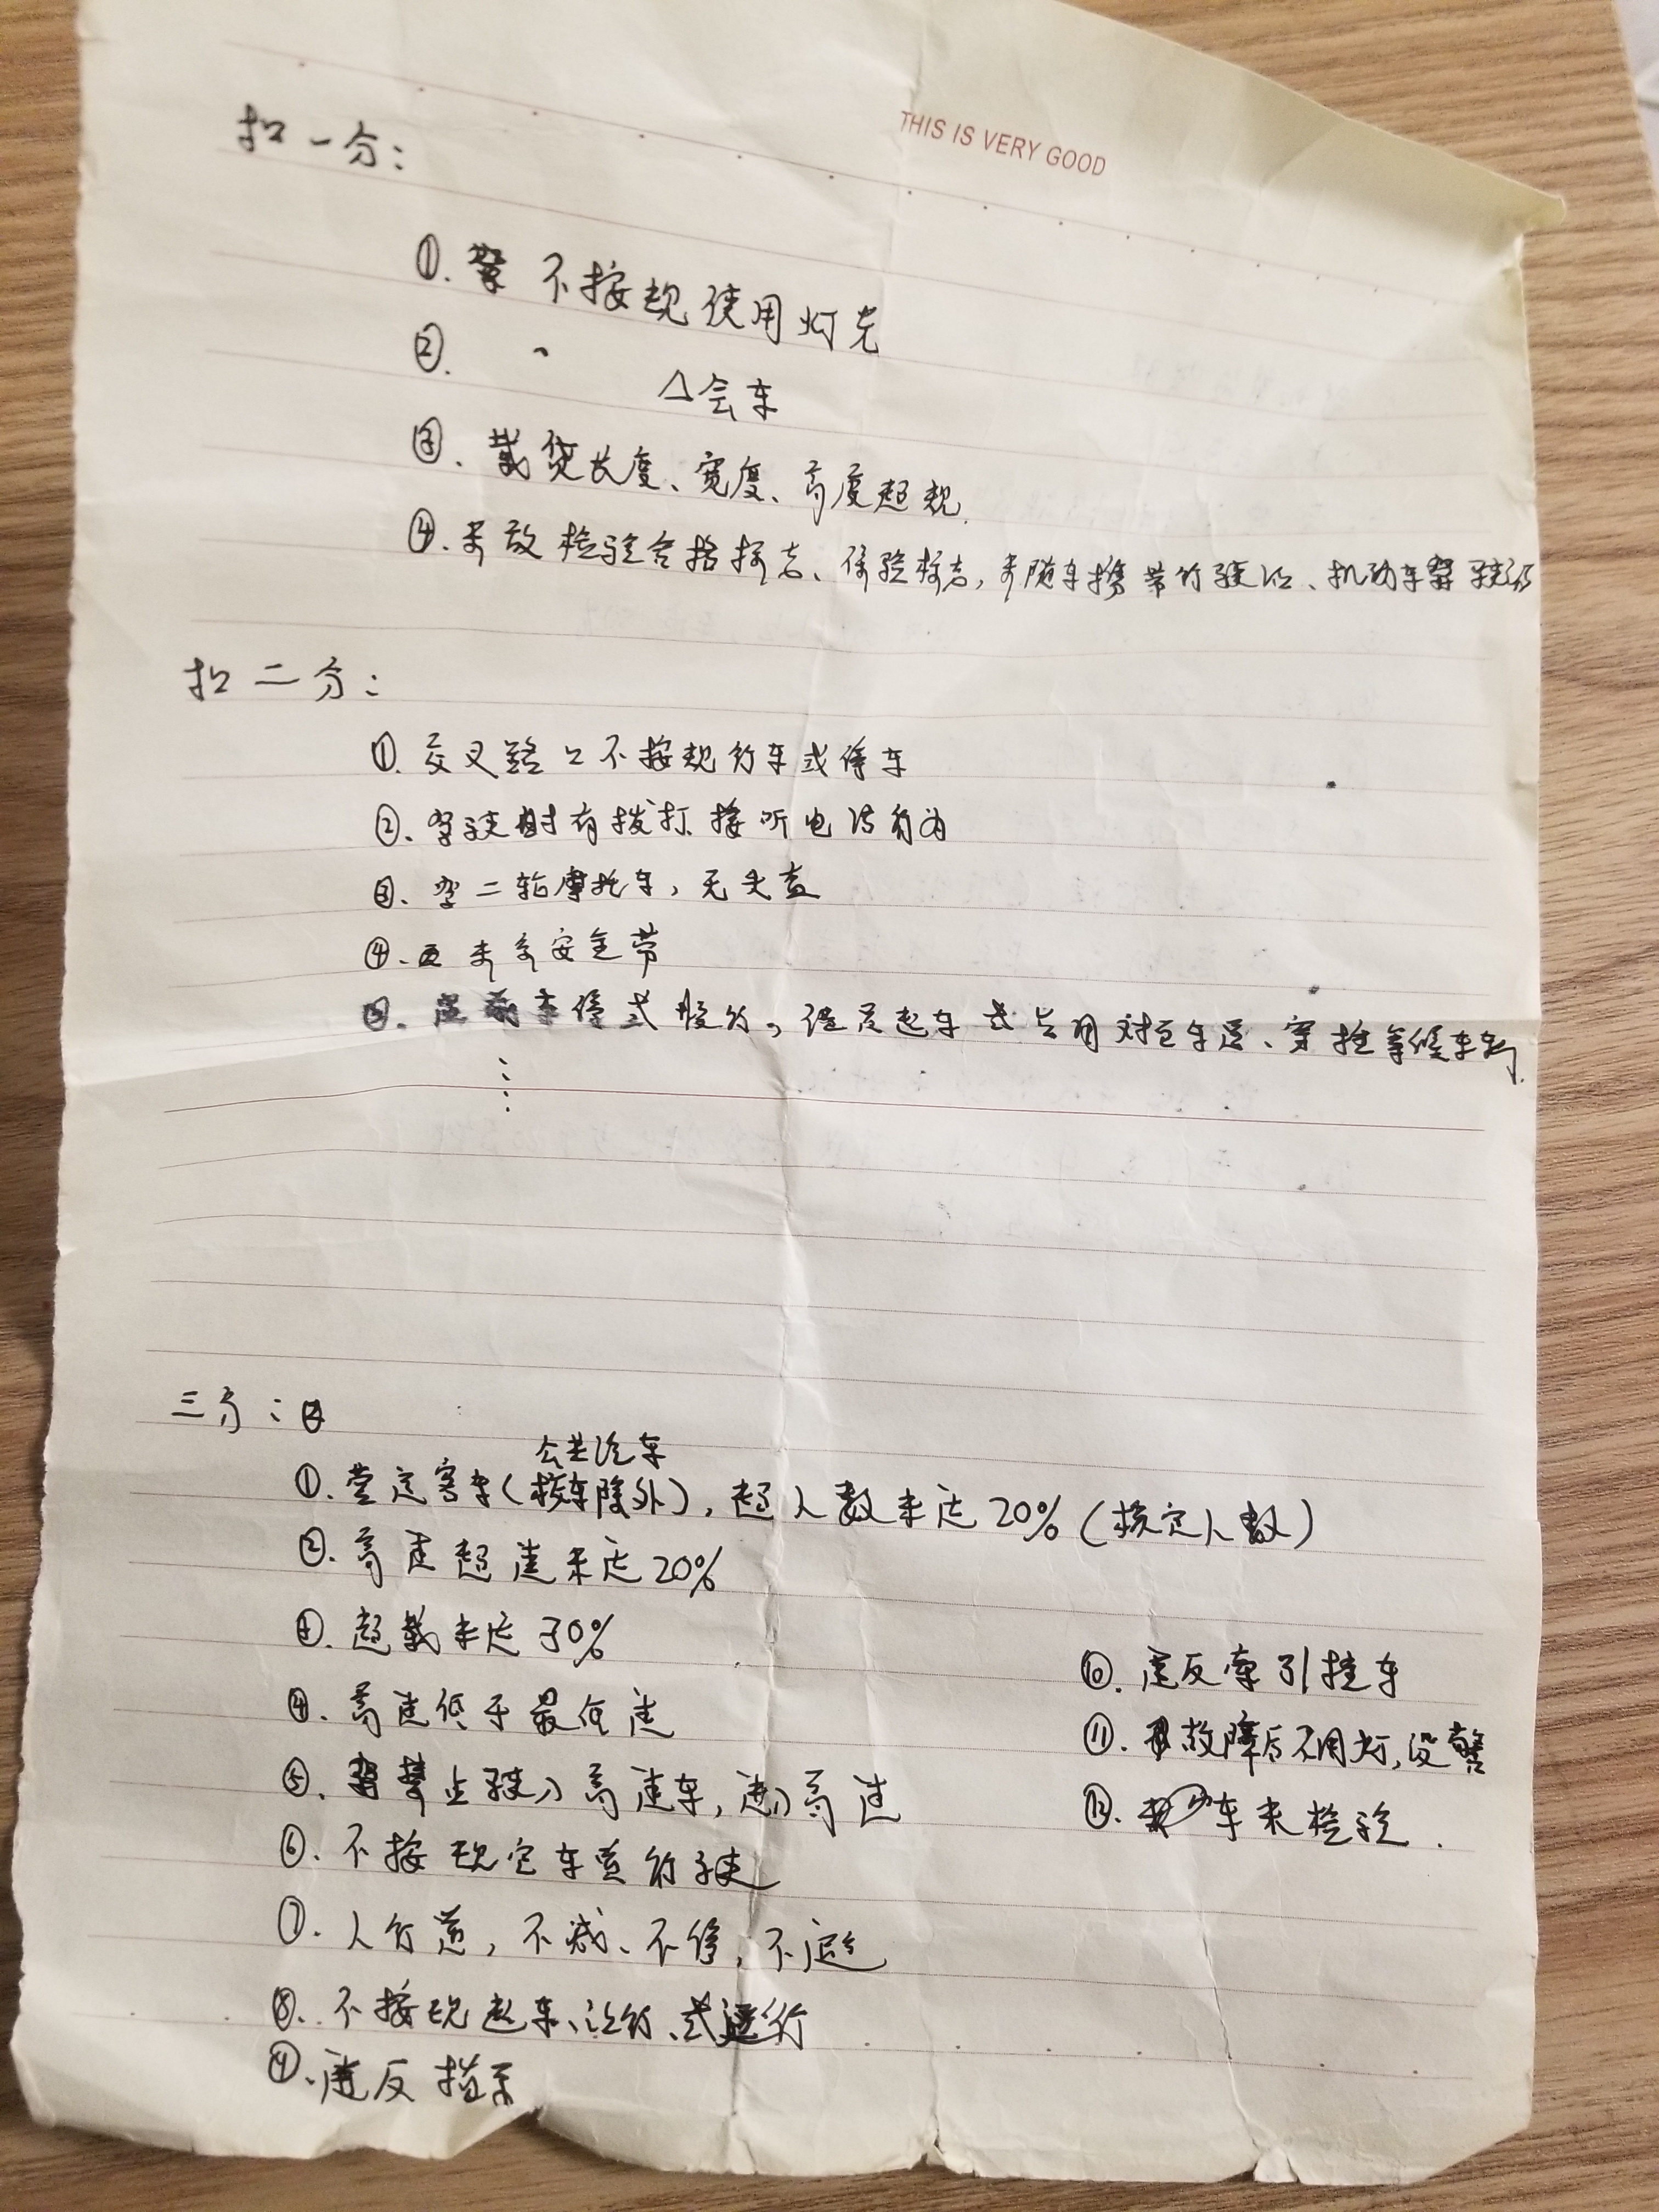 THIS IS VERY GOOD
扣一分：
①. 不按规使用灯光
②. 、 △会车
③. 载货长度、宽度、高度超规.
④. 未放检验合格标志、保险标志，未随车携带行驶证、机动车驾驶证
扣二分：
①. 交叉路口不按规行车或停车
②. 驾驶时有拨打、接听电话行为
③. 驾二轮摩托车，无头盔
④. 未系安全带
⑤. 前车停或缓行，借道超车或占用对面车道、穿插等候车辆.
⋮
三分：
公共汽车
①. 营运客车（校车除外），超人数未达20%（核定人数）
②. 高速超速未达20%
③. 超载未达30%
④. 高速低于最低速
⑤. 禁止驶入高速车，进入高速
⑥. 不按规定车道行驶
⑦. 人行道，不减、不停、不避
⑧. 不按规超车、让行、或逆行
⑨. 违反指示
⑩. 违反牵引挂车
⑪. 故障后不用灯，设警
⑫. 车未检验.